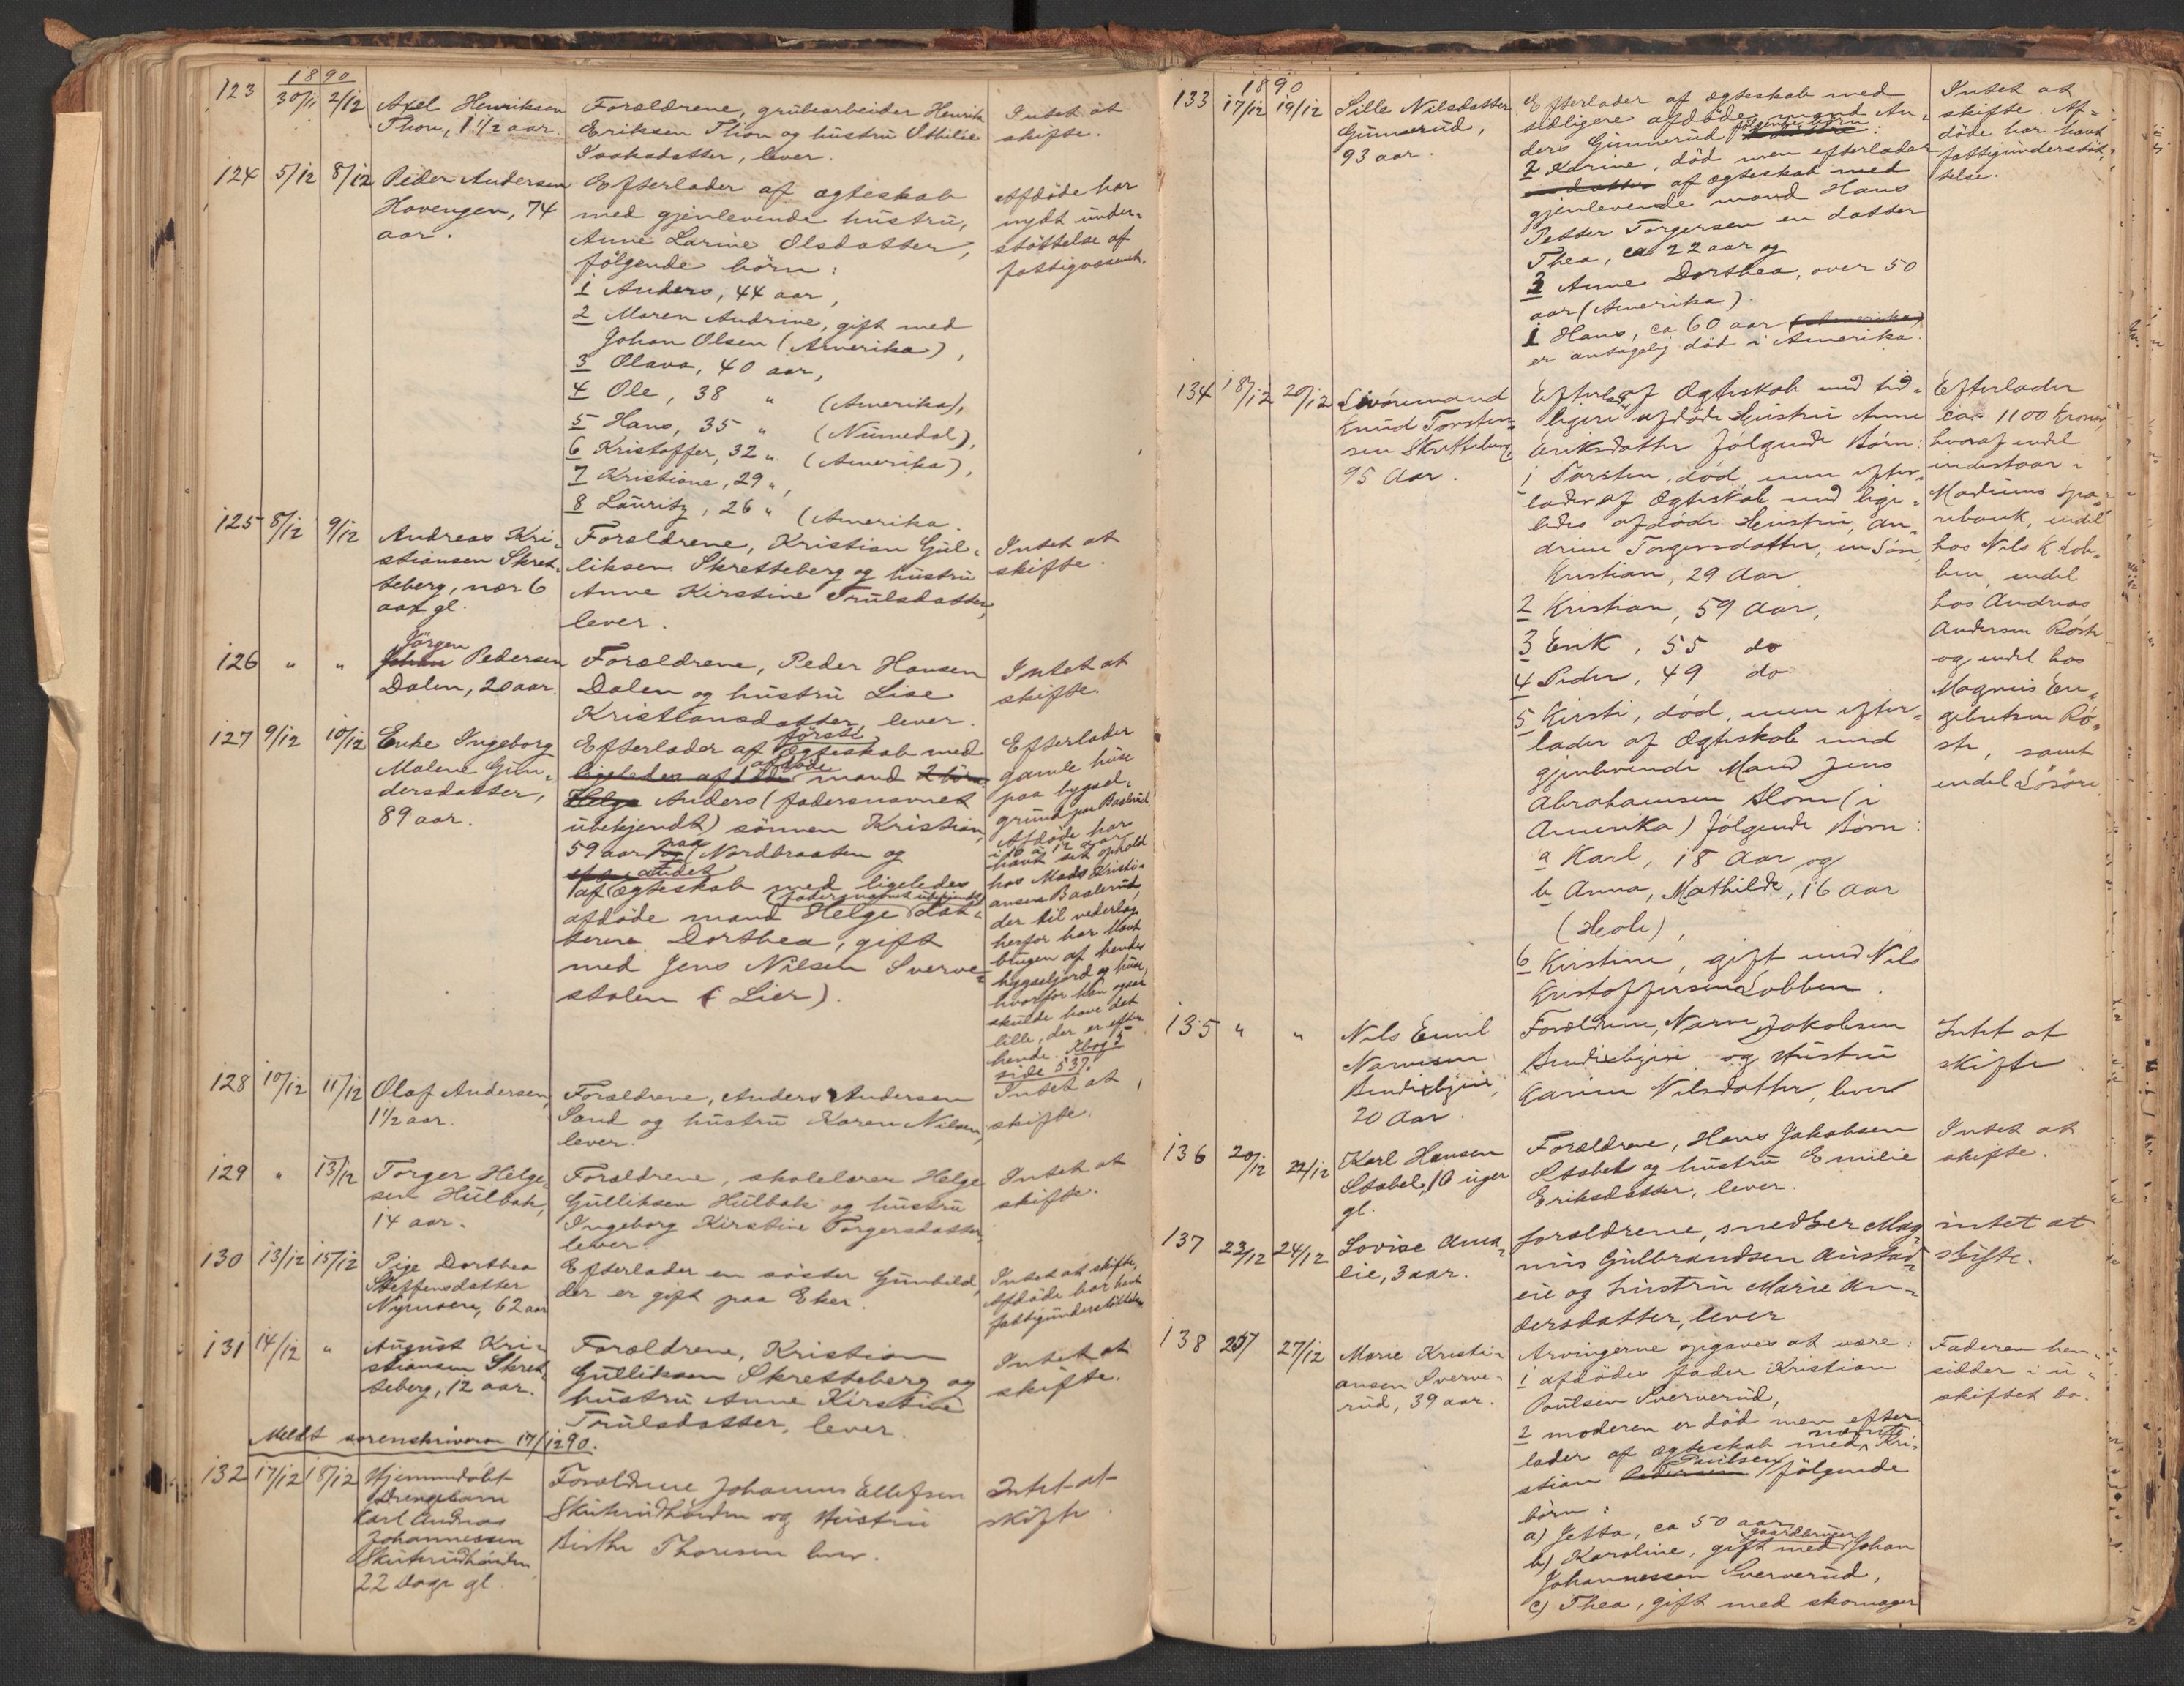 1890
123 30/11 2/12 Axel Henriksen
Thon, 1 1/2 aar.
Forældrene, grubearbeider Henrik
Eriksen Thon og hustru Othilie
Isaksdatter, lever.
Intet at
skifte.
124 5/12 8/12 Peder Andersen
Hovengen, 74
aar.
Efterlader af ægteskab
med gjenlevende hustru,
Anne Larine Olsdatter,
følgende børn:
1 Anders, 44 aar,
2 Maren Andrine, gift med
Johan Olsen (Amerika),
3 Olava, 40 aar,
4 Ole, 38 " (Amerika),
5 Hans, 35 " (Numedal),
6 Kristoffer, 32 " (Amerika),
7 Kristiane, 29 ",
8 Lauritz, 26 " (Amerika.
Afdøde har
nydt under-
støttelse af
fattigvæsenet.
125 8/12 9/12 Andreas Kri-
stiansen Skret-
teberg, nær 6
aar gl.
Forældrene, Kristian Gul-
liksen Skretteberg og hustru
Anne Kirstine Trulsdatter,
lever.
Intet at
skifte.
126 " " Jørgen
Johan Pedersen
Dalen, 20 aar.
Forældrene, Peder Hansen
Dalen og hustru Lise
Kristiansdatter, lever.
Intet at
skifte.
127 9/12 10/12 Enke Ingeborg
Malene Gun-
dersdatter,
89 aar.
første
Efterlader af ægteskab med
afdøde
ligeledes afdøde mand 2 børn
Helge Anders (fadersnavnet
ubekjendt) sønnen Kristian,
59 aar paa Nordbraaten og
andet
af ægteskab med ligeledes
(fadersnavnet ubekjendt)
afdøde mand Helge dat-
teren Dorthea, gift
med Jens Nilsen Sverve-
stolen (Lier).
Efterlader
gamle huse
paa bygsel-
grund paa Baslerud.
Afdøde har
i 10 a 12 aar
havt sit ophold
hos Mads Kristi-
ansen Baslerud,
der til vederlag
herfor har havt
brugen af hendes
bygseljord og huse,
hvorfor han ogsaa
skulde have det
lille, der er efter
hende. Kbog 5
side 537.
128 10/12 11/12 Olaf Andersen,
1 1/2 aar.
Forældrene, Anders Andersen
Sand og hustru Karen Nilsen,
lever.
Intet at
skifte.
129 " 13/12 Torger Helge-
sen Hulbak,
14 aar.
Forældrene, skolelærer Helge
Gulliksen Hulbak og hustru
Ingeborg Kirstine Torgersdatter,
lever.
Intet at
skifte.
130 13/12 15/12 Pige Dorthea
Steffensdatter
Nymoen, 62 aar
Efterlader en søster Gunhild,
der er gift paa Eker.
Intet at skifte,
Afdøde har havt
fattigunderstøttelse
131 14/12 " August Kri-
stiansen Skret-
teberg, 12 aar.
Forældrene, Kristian
Gulliksen Skretteberg og
hustru Anne Kirstine
Trulsdatter, lever.
Intet at
skifte.
Meldt sorenskriveren 17/12 90.
132 17/12 18/12 Hjemmedøbt
Drengebarn
Karl Andreas
Johannessen
22 Dage gl.
Forældrene Johannes Ellefsen
og Hustru
Birthe Thoresen lever.
Intet at
skifte.
1890
133 17/12 19/12 Sille Nilsdatter
Gunnerud,
93 aar.
Efterlader af ægteskab med
tidligere afdøde mand An-
ders Gunnerud følgende børn:
2 Karine, død men efterlader
en datter af ægteskab med
gjenlevende mand Hans
Petter Torgersen en datter
Thea, ca 22 aar og
3 Anne Dorthea, over 50
aar (Amerika).
1 Hans, ca 60 aar (Amerika)
er antagelig død i Amerika.
Intet at
skifte. Af-
døde har havt
fattigunderstøt-
telse.
134 18/12 20/12
Knud Torsten-
sen Skretteberg
95 Aar.
Efterlader af Ægteskab med tid-
ligere afdøde Hustru Anne
Eriksdatter følgende Børn:
1 Torsten, død, men efter-
lader af Ægteskab med lige-
ledes afdøde Hustru, An-
drine Torgersdatter, en Søn
Kristian, 29 Aar
2 Kristian, 59 Aar,
3 Erik, 55 do
4 Peder, 49 do
5 Kirsti, død, men efter-
lader af Ægteskab med
gjenlevende Mand Jens
Abrahamsen Blom (i
Amerika) følgende Børn:
a Karl, 18 Aar og
b Anna, Mathilde, 16 Aar
(Hole),
6 Kirstine, gift med Nils
Kristoffersen Lobben.
Efterlader
ca 1100 Kroner
hvoraf endel
indestaar i
Modums Spa-
rebank, endel
hos Nils K Lob-
ben, endel
hos Andreas
Andersen
og endel hos
Magnus En-
gebretsen
samt
endel Løsøre
135 " " Nils Emil
20 Aar.
Forældrene, Jakobsen
og Hustru
Karine Nilsdatter, lever
Intet at
skifte
136 20/12 22/12 Karl Hansen
Stabel, 10 uger
gl.
Forældrene, Hans Jakobsen
Stabel og hustru Emilie
Eriksdatter, lever.
Intet at
skifte.
137 23/12 24/12 Lovise Ama-
lie, 3 aar.
forældrene, snedker Mag-
nus Gulbrandsen Austad-
eie og hustru Marie An-
dersdatter, lever
intet at
skifte.
138 25/ 27/12 Marie Kristi-
ansen Sverve-
rud, 39 aar.
Arvingerne opgaves at være:
1 afdødes fader Kristian
Paulsen Sververud,
2 moderen er død men efter
lader af ægteskab med nævnte Kri-
stian Pedersen Paulsen følgende
børn:
a) Jetta, ca 50 aar
b) Karoline, gift med gaardbruger Johan
Johannessen Sververud,
c) Thea, gift med skomager
Faderen hen-
sidder i u-
skiftet bo.